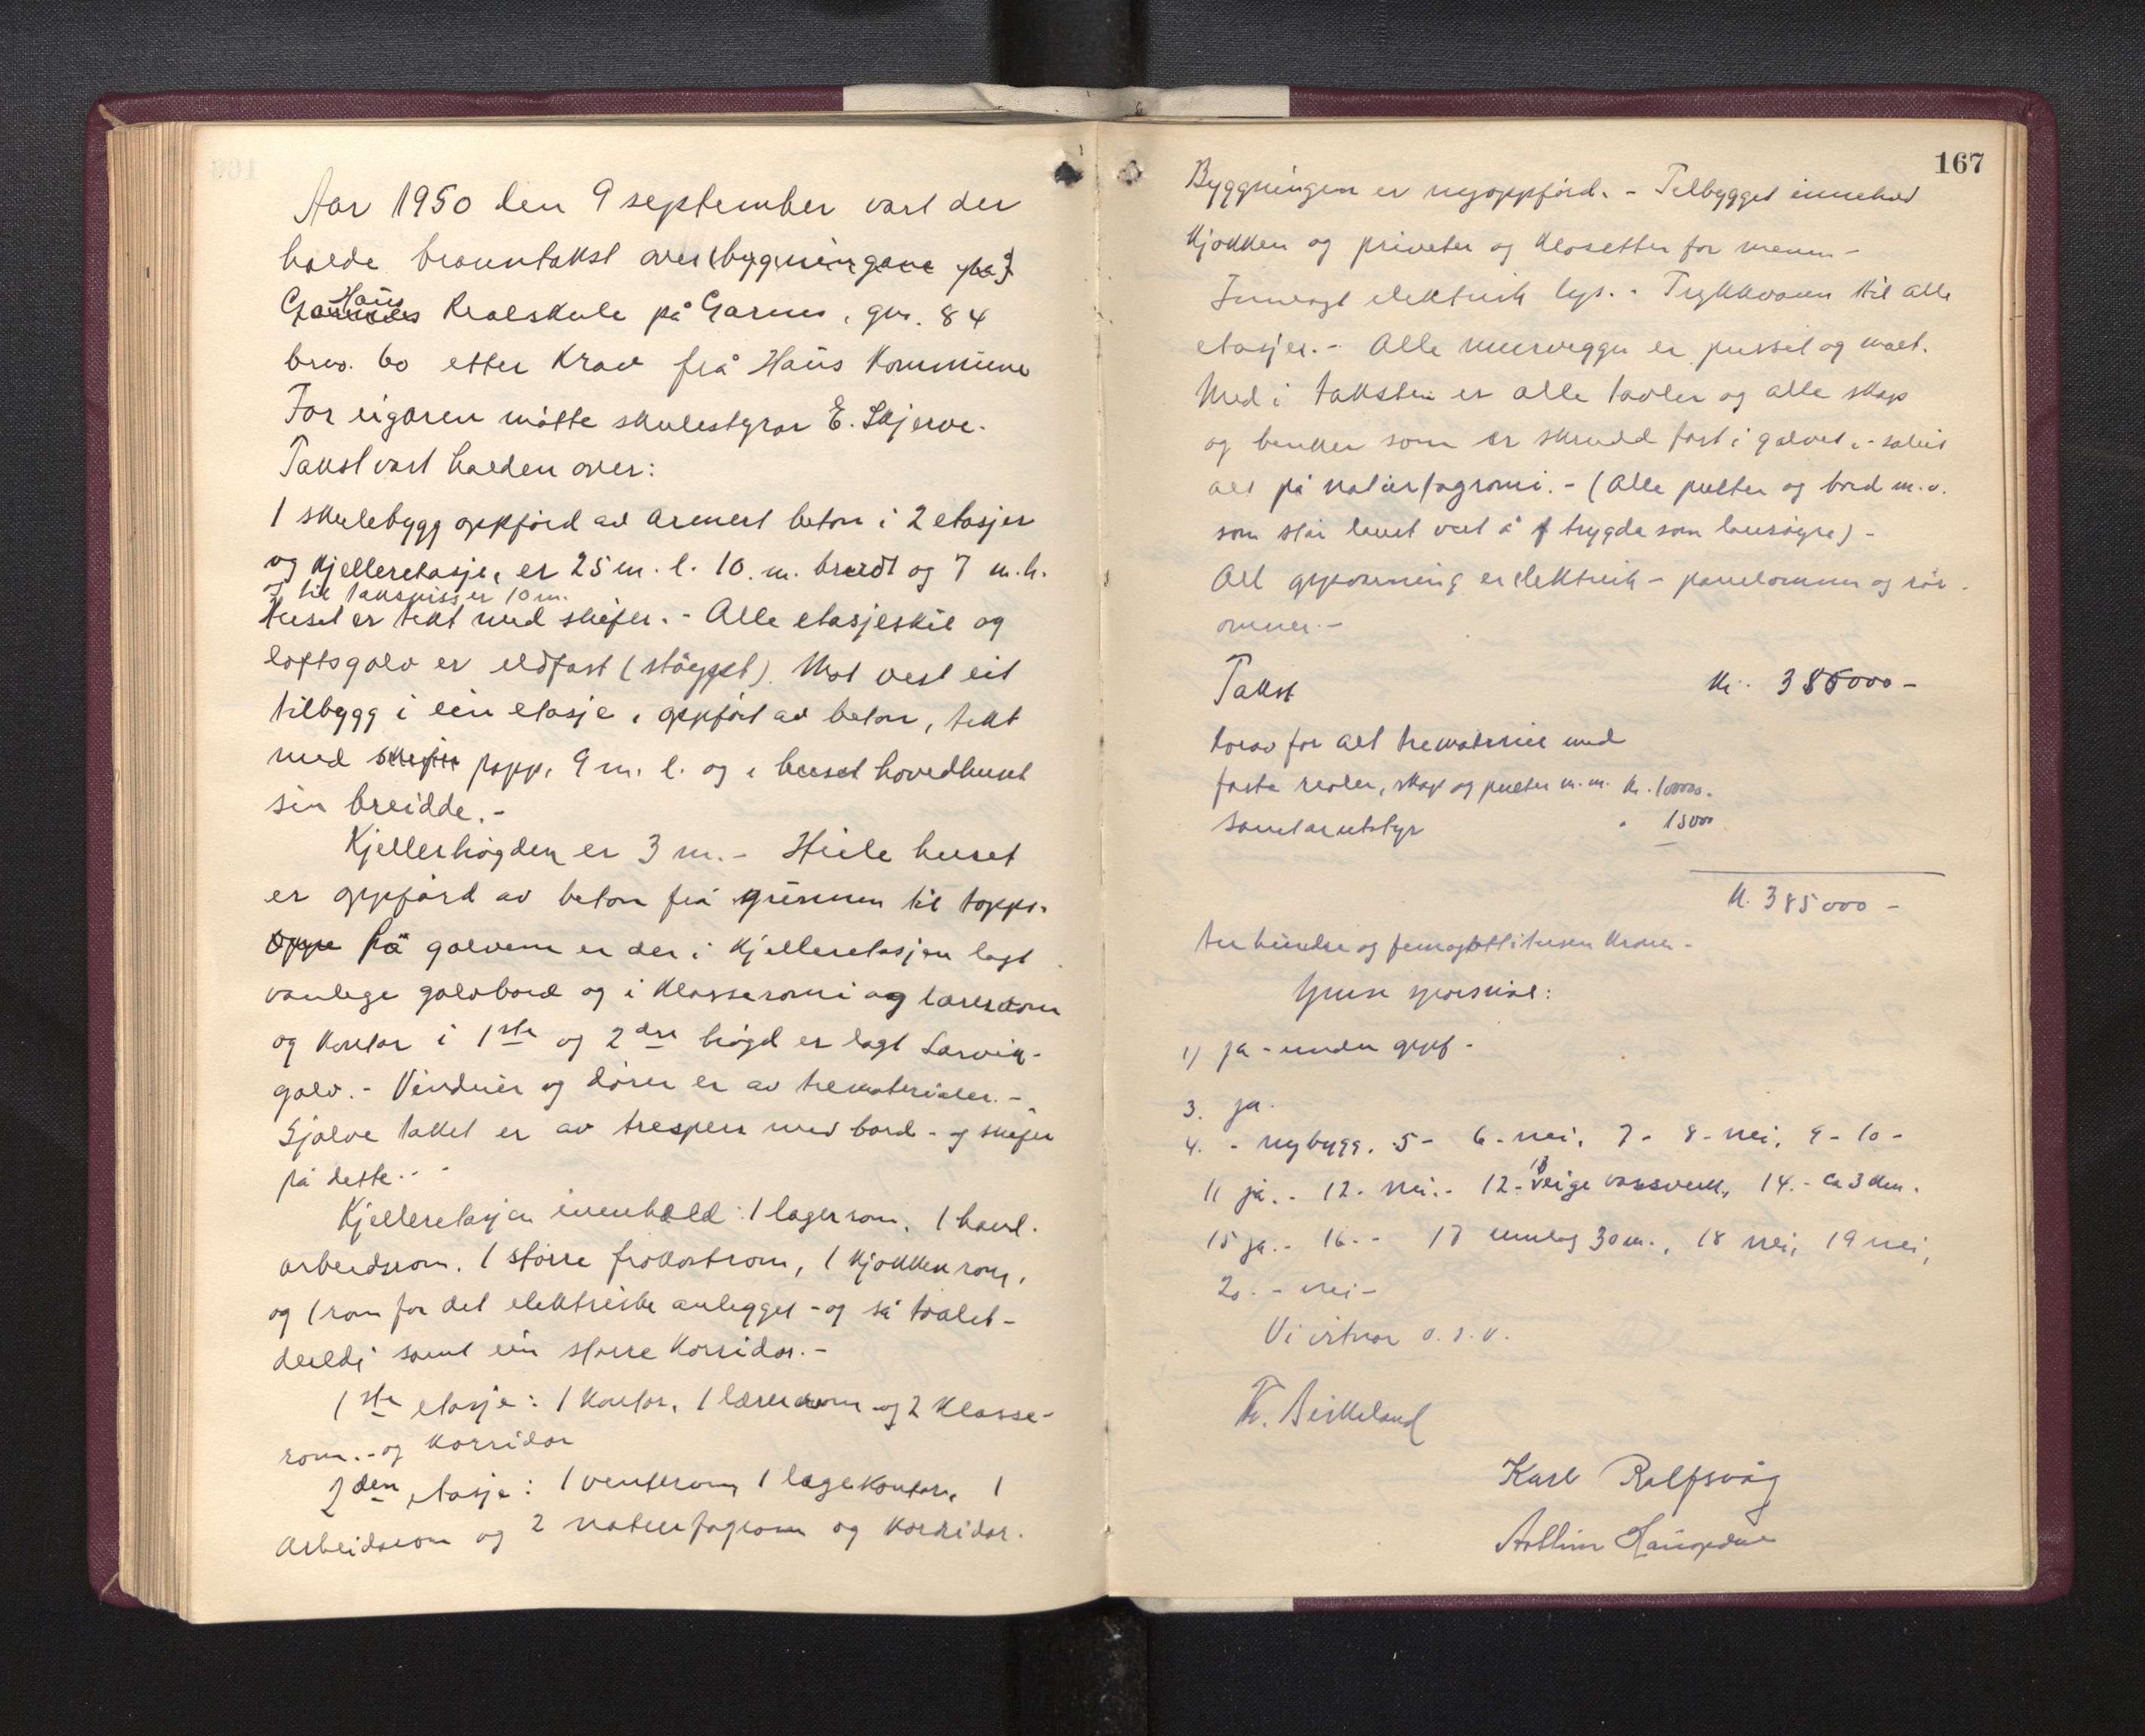 Aar 1950 den 9 september vart der
halde branntakst over (bygningane på)
Haus
Garnes Realskule på Garnes, gnr. 84
brno. 60 etter krav frå Haus Kommune
For eigaren møtte skulestyrar E. Skjerve.
Takst vart halden over:
1 skulebygg oppförd av armert beton i 2 etasjer
og kjelleretasje, er 25 m. l. 10. m. breidt og 7 m. h.
og til takspiss er 10 m.
Huset er tekt med skifer. - Alle etasjeskil og
loftsgolv er eldfast (støypt). Mot vest eit
tilbygg i ein etasje, oppfört av beton, tekt
med skifer papp, 9 m. l. og i huset hovedhuset
sin breidde. -
Kjellerhögden er 3 m. - Heile huset
er oppförd av beton frå grunnen til topps.
Oppe på golvene er der i kjelleretasjen lagt
vanlege golvbord og i klasseromi og lærerrom
og kontor i 1ste og 2dre högd er lagt Larvik-
golv. - Vinduer og dörer er av trematerialer. -
Sjølve taket er av tresperr med bord - og skifer
på dette. -
Kjelleretasjen innehald: 1 lagerrom, 1 hand.
arbeidsrom. 1 större frokostrom, 1 kjøkkenrom,
og 1 rom for det elektriske anlegget - og så toalet-
deildi samt ein större korridor. -
1ste etasje: 1 kontor, 1 lærerrom og 2 klasse-
rom. - og korridor
2den etasje: 1 venterom, 1 legekontor, 1
arbeidsrom og 2 naturfagrom og korridor.
167
Byggningen er nyoppförd. - Tilbygget innehald
kjøkken og priveter og klosetter for menn -
Innlagt elektrisk lys. - Trykkvann til alle
etasjer. - Alle murvegger er pusset og malt.
Med i taksten er alle tavler og alle skap
og benker som er skrudd fast i golvet, - soleis
alt på naturfagromi. - (Alle pulter og bord m. v.
som står laust vert å trygda som lausøyre) -
All oppvarming er elektrisk - panelomner og rör-
omner. -
Takst kr. 385000 -
herav for alt tremateriale med
faste reoler, skap og pulter m. m. kr. 100000.
Sanitærutstyr " 15000
kr. 385000 -
tre hundre og femogåttitusen kroner -
Ymse spørsmål:
1) ja - under oppf -
3. ja.
4. - nybygg. 5 - 6 - nei, 7 - 8 - nei, 9 - 10 -
11 ja. - 12. nei. - 12 - 13 eige vassverk, 14. - ca 3 km.
15 ja. - 16 - - 17 innlag 30 m., 18 nei, 19 nei,
20. - nei -
Vi vitnar o. s. v.
Th. Birkeland
Karl Rolfsvåg